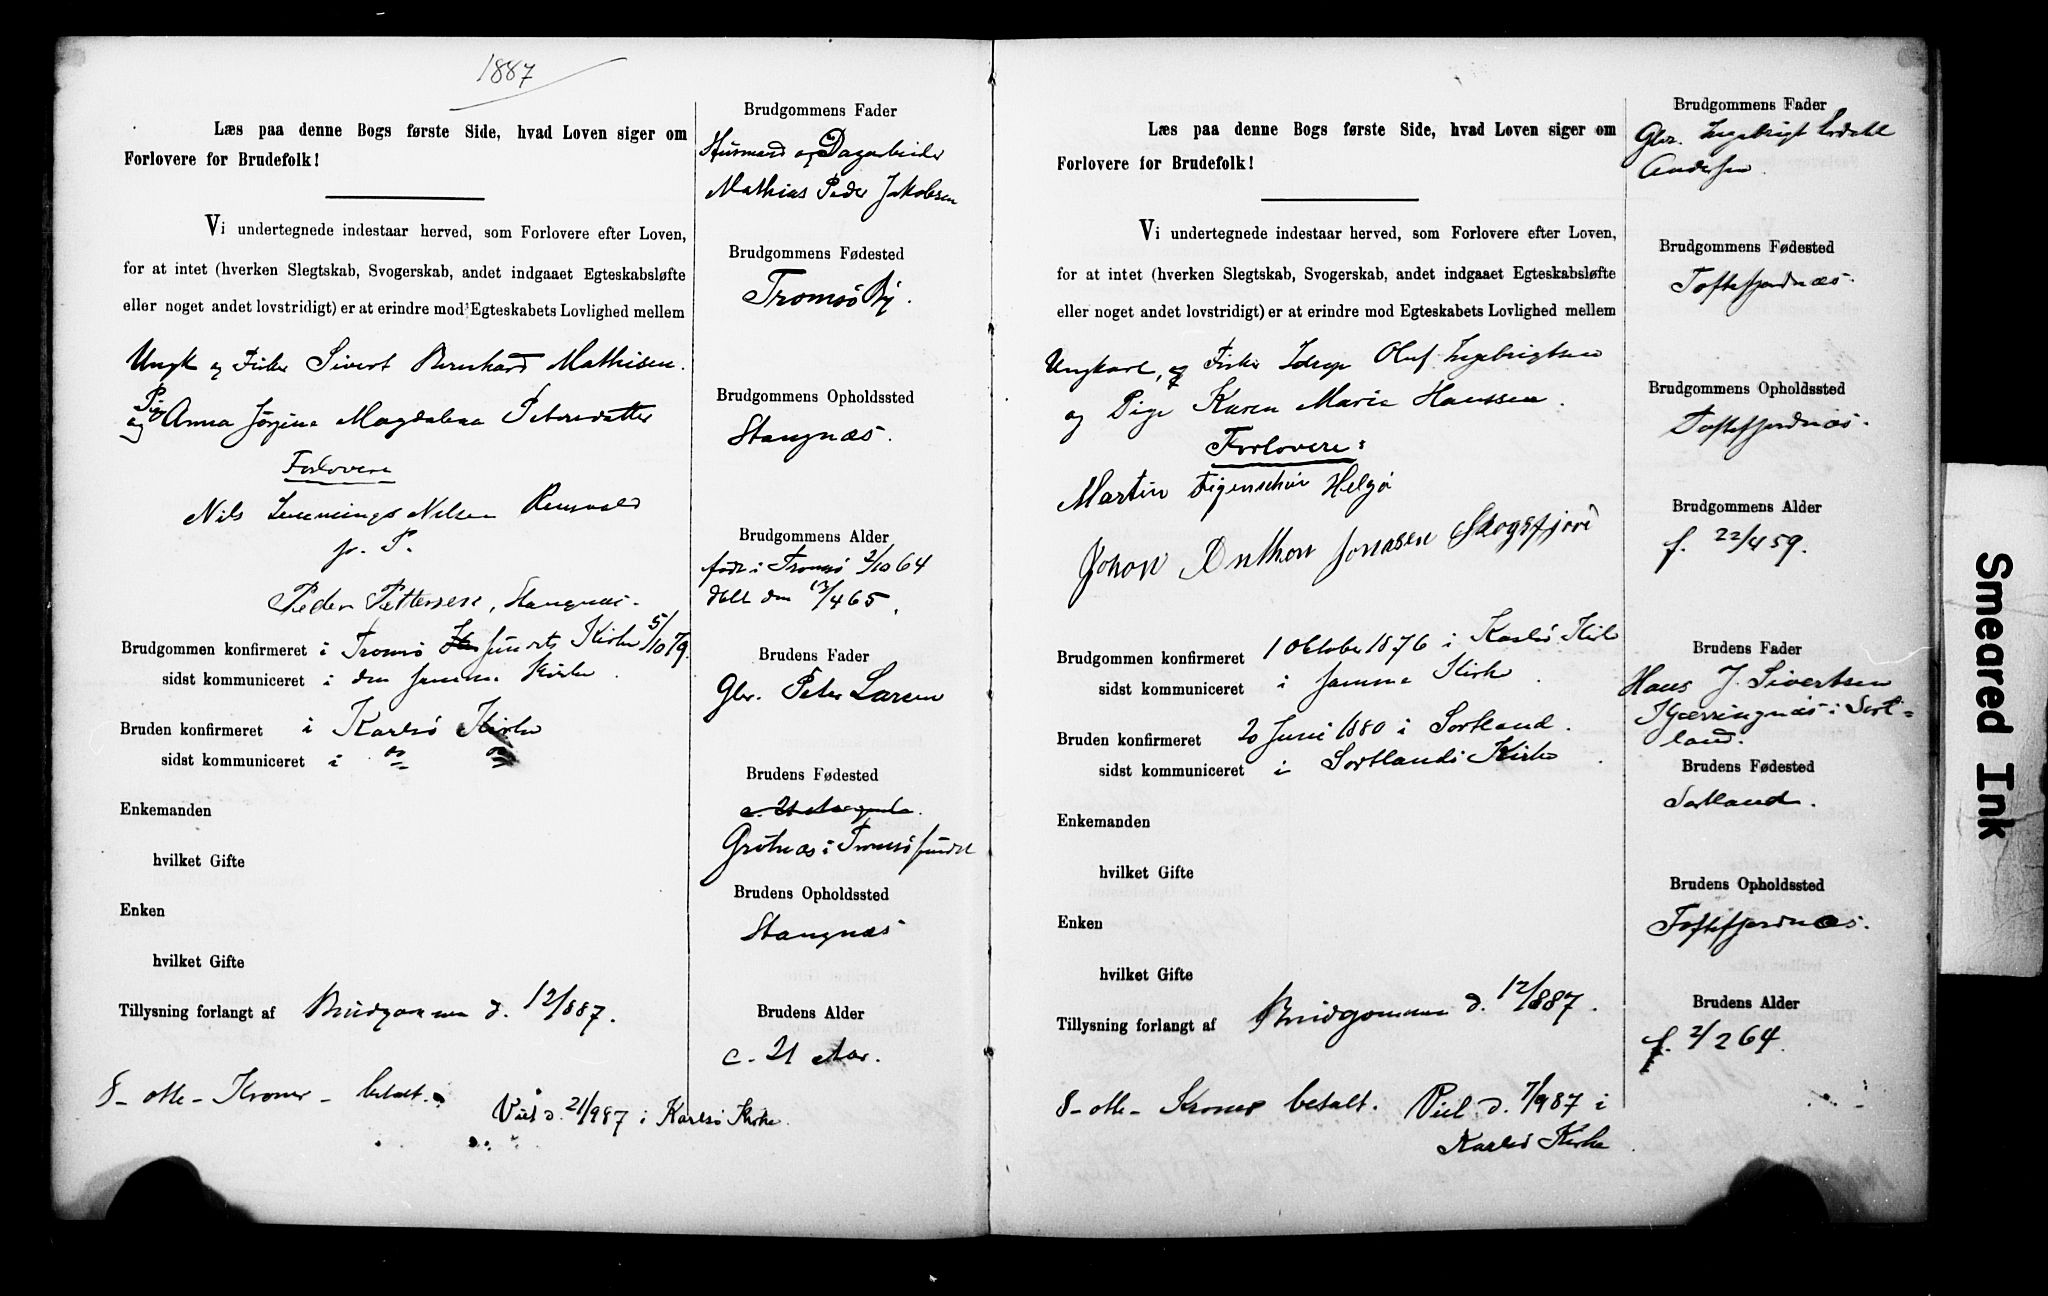 1887
Læs paa denne Bogs første Side, hvad Loven siger om
Forlovere for Brudefolk!
Vi undertegnede indestaar herved, som Forlovere efter Loven,
for at intet (hverken Slegtskab, Svogerskab, andet indgaaet Egteskabsløfte
eller noget andet lovstridigt) er at erindre mod Egteskabets Lovlighed mellem
Ungk og Fisker Sivert Bernhard Mathisen.
og Pige Anna Jørgine Magdalena Petersdatter
Forlovere
Nils Nilsen
p. P.
Peder Pettersen, Stangnæs.
Brudgommen konfirmeret i Tromsø Kirke 5/10 79.
sidst kommuniceret i den samme Kirke.
Bruden konfirmeret i Karlsø Kirke
sidst kommuniceret i do do
Enkemanden
hvilket Gifte
Enken
hvilket Gifte
Tillysning forlangt af Brudgommen d. 12/8 87.
8 - otte - Kroner - betalt.
Viet d. 21/9 87 i Karlsø Kirke.
Brudgommens Fader
Husmand og Dagarbeider
Mathias Peder Jakobsen
Brudgommens Fødested
Tromsø By.
Brudgommens Opholdssted
Stangnæs.
Brudgommens Alder
født i Tromsø 2/10 64
døbt den 13/4 65.
Brudens Fader
Gbr. Peter Larsen
Brudens Fødested
Grøtnæs i Tromsøsundet
Brudens Opholdssted
Stangnæs
Brudens Alder
c. 21 Aar.
Læs paa denne Bogs første Side, hvad Loven siger om
Forlovere for Brudefolk!
Vi undertegnede indestaar herved, som Forlovere efter Loven,
for at intet (hverken Slegtskab, Svogerskab, andet indgaaet Egteskabsløfte
eller noget andet lovstridigt) er at erindre mod Egteskabets Lovlighed mellem
Ungkarl, og Fisker Oluf Ingebrigtsen
og Pige Karen Marie Hanssen.
Forlovere:
Martin Figenschou Helgø
Johan Anthon Jonasen Skogsfjord
Brudgommen konfirmeret 1 Oktober 1876 i Karlsø Kirke
sidst kommuniceret i samme Kirke.
Bruden konfirmeret 20 Juni 1880 i Sortland.
sidst kommuniceret i Sortlands Kirke.
Enkemanden
hvilket Gifte
Enken
hvilket Gifte
Tillysning forlangt af Brudgommen d. 12/8 87.
8 - otte - Kroner betalt. Viet d. 7/9 87 i
Karlsø Kirke.
Brudgommens Fader
Gbr. Ingebrigt
Andersen.
Brudgommens Fødested
Toftefjordnæs.
Brudgommens Opholdssted
Toftefjordnæs.
Brudgommens Alder
f. 22/4 59.
Brudens Fader
Hans J. Sivertsen
Kjærringnæs i Sort=
land.
Brudens Fødested
Sortland.
Brudens Opholdssted
Toftefjordnæs.
Brudens Alder
f. 2/2 64.
Smeared Ink